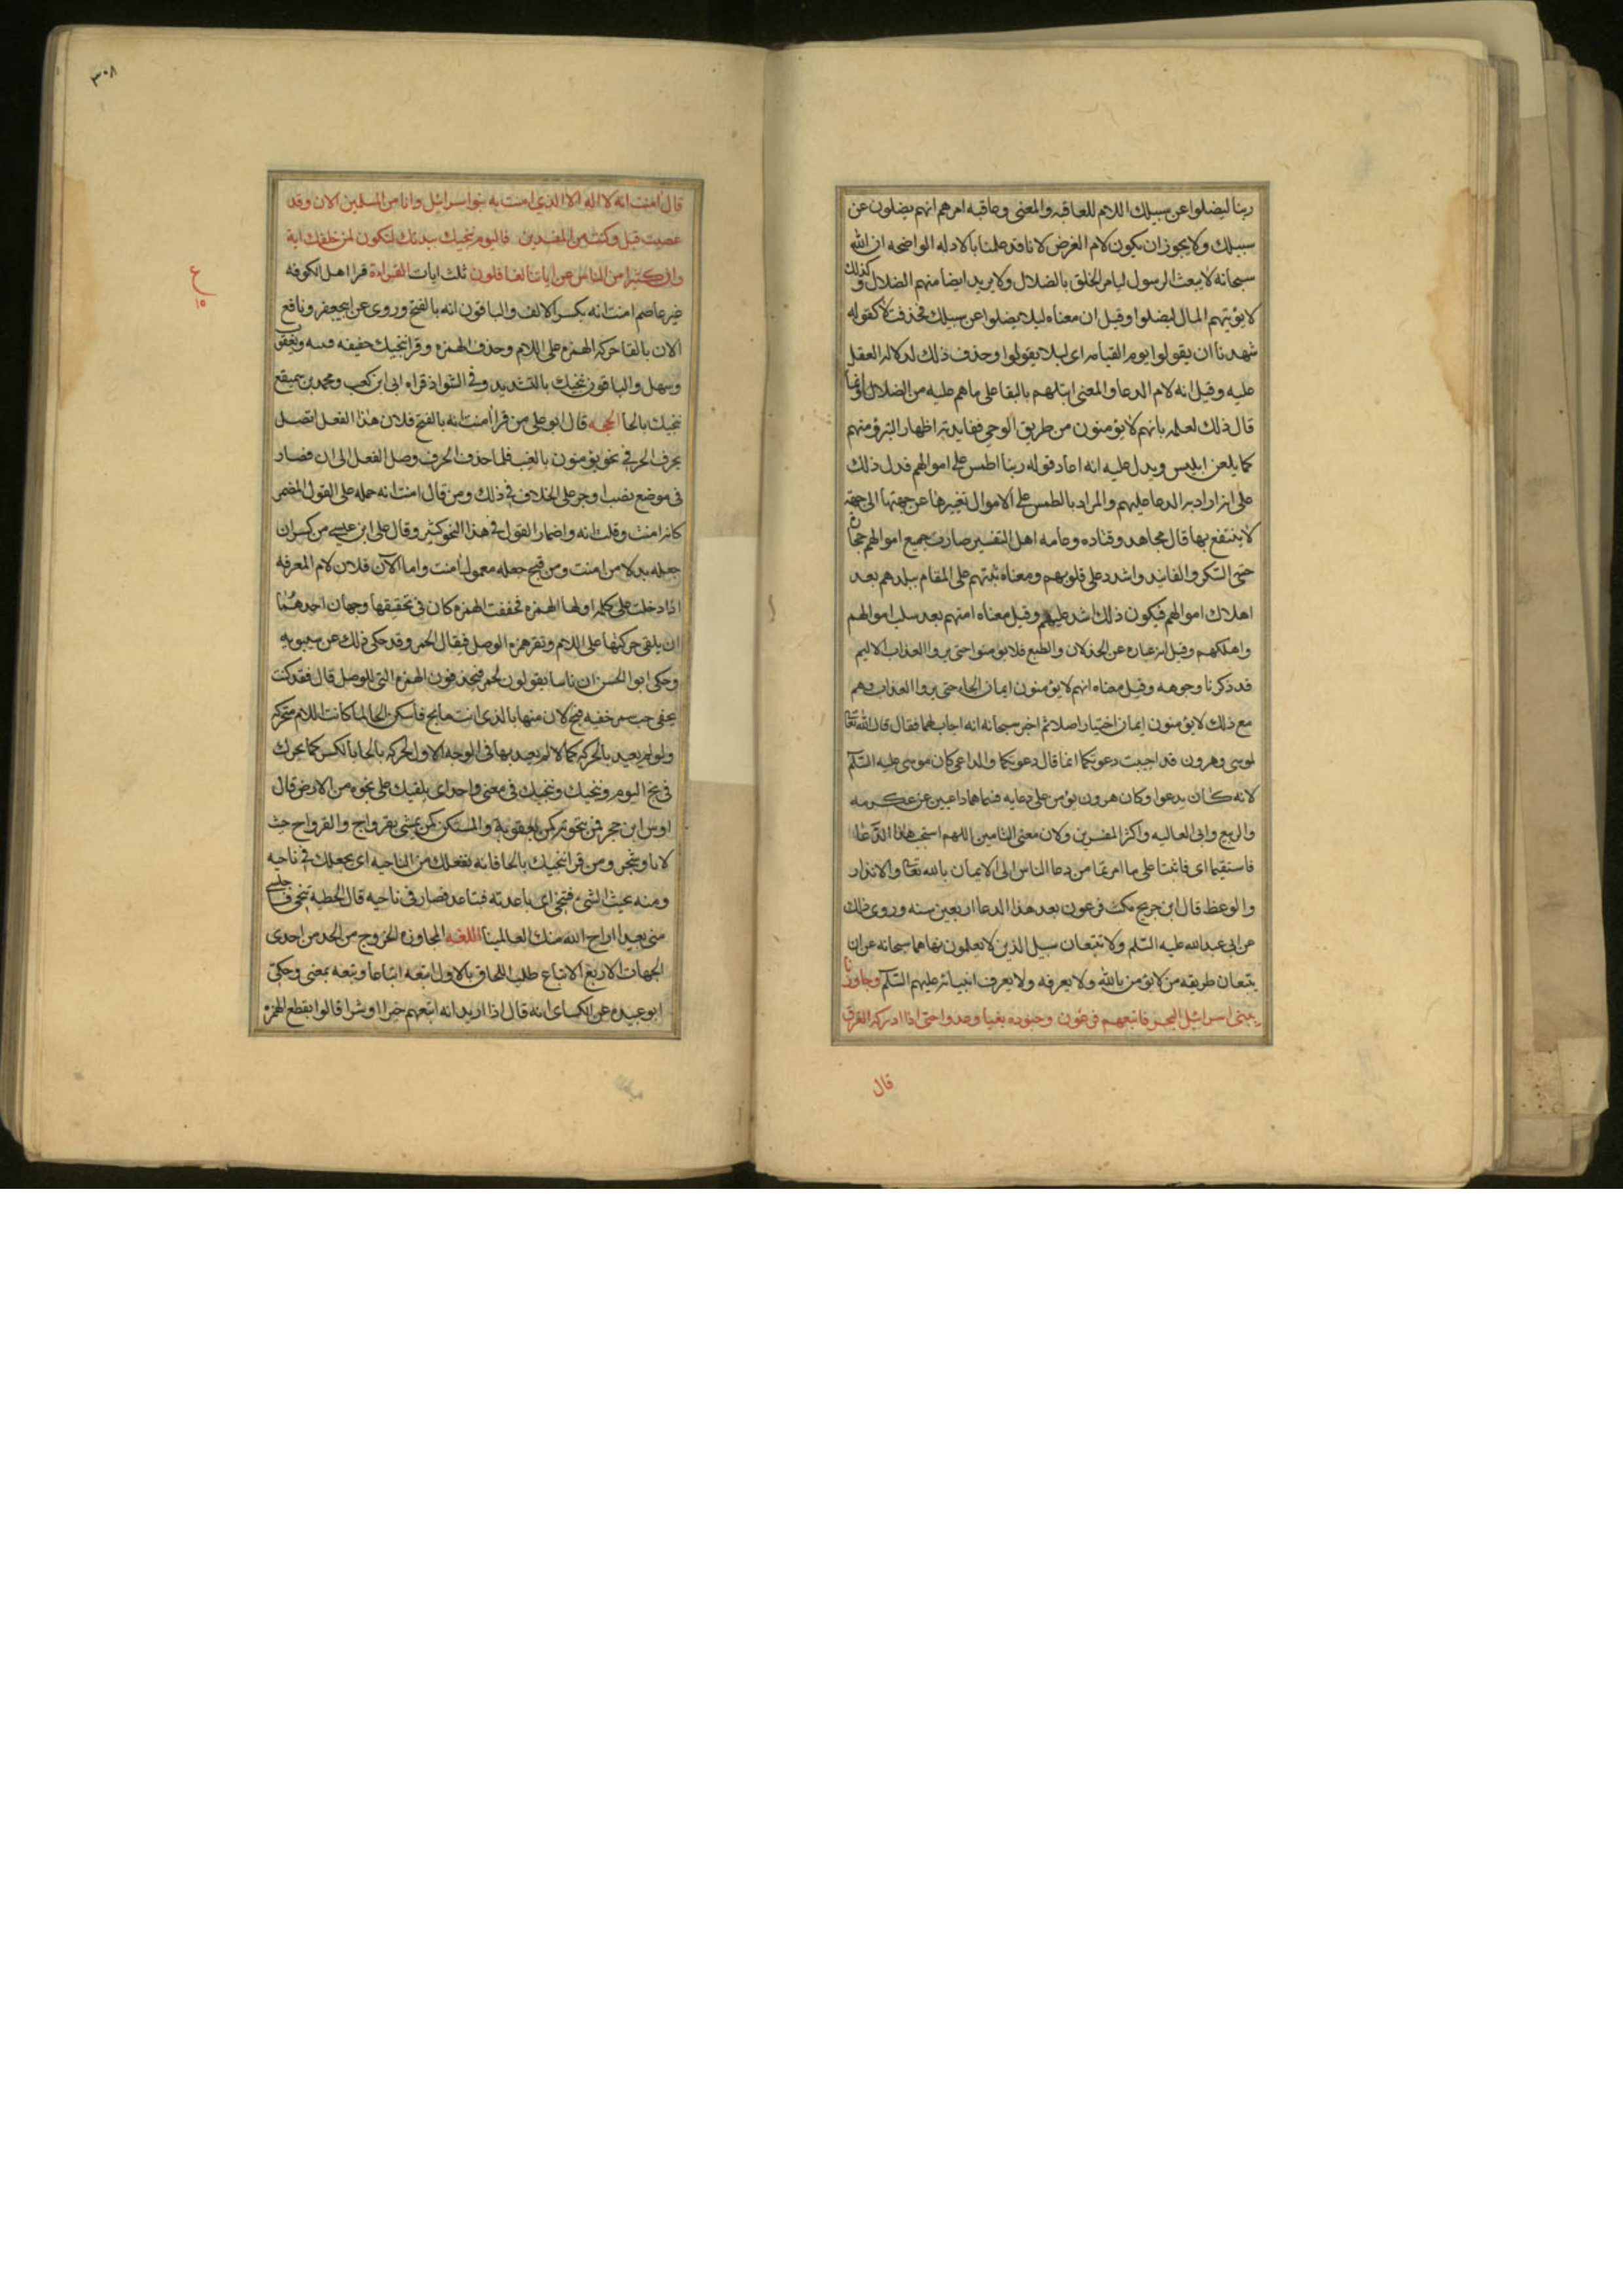 ربنا ليضلوا عن سبيلك اللام للعاقبه والمعنى وعاقبه امرهم انهم يضلون عن
سبيلك ولا يجوز ان يكون لام الغرض لانا قد علمنا بالادله الواضحه ان الله
سبحانه لا يبعث الرسول ليامر الخلق بالضلال ولا يريد ايضا منهم الضلال وكذلك
لا يؤتيهم المال ليضلوا وقيل ان معناه ليلا يضلوا عن سبيلك فحذفت لا كقوله
شهدنا ان يقولوا يوم القيامه اى ليلا يقولوا وحذف ذلك لدلاله العقل
عليه وقيل انه لام الدعا والمعنى ابتلهم بالبقا على ماهم عليه من الضلال وانما
قال ذلك لعلمه بانهم لا يؤمنون من طريق الوحى ففايدته اظهار التبرؤ منهم
كما يلعن ابليس ويدل عليه انه اعاد قوله ربنا اطمس على اموالهم فدل ذلك
على انه اراد به الدعا عليهم والمراد بالطمس على الاموال تغييرها عن جهتها الى جهة
لا ينتفع بها قال مجاهد وقتاده وعامه اهل التفسير صارت جميع اموالهم حجارة
حتى السكر والفانيد واشدد على قلوبهم ومعناه ثبتهم على المقام ببلدهم بعد
اهلاك اموالهم فيكون ذلك اشد عليهم وقيل معناه امتهم بعد سلب اموالهم
واهلكهم وقيل انه عباره عن الخذلان والطبع فلا يؤمنوا حتى يروا العذاب الاليم
قد ذكرنا وجوهه وقيل معناه انهم لا يؤمنون ايمان الجاء حتى يروا العذاب وهم
مع ذلك لا يؤمنون ايمان اختيار اصلا ثم اخبر سبحانه انه اجاب لهما فقال قال الله تعالى
لموسى وهرون قد اجيبت دعوتكما انما قال دعوتكما والداعى كان موسى عليه السلم
لانه كان يدعوا وكان هرون يؤمن على دعايه فسماهما داعيين عن عكرمه
والربيع وابى العاليه واكثر المفسرين ولان معنى التامين اللهم استجب هذا الدعا
فاستقيما اى فاثبتا على ما امرتما من دعا الناس الى الايمان بالله تعالى والانذار
والوعظ قال ابن جريج مكث فرعون بعد هذا الدعا اربعين سنه وروى ذلك
عن ابى عبدالله عليه السلم ولا تتبعان سبيل الذين لا يعلمون نهاهما سبحانه عن ان
يتبعان طريقه من لا يؤمن بالله ولا يعرفه ولا يعرف انبيائه عليهم السلم وجاوزنا
ببنى اسرائيل البحر فاتبعهم فرعون وجنوده بغيا وعدوا حتى اذا ادركه الغرق
قال
٣٠٨
قال امنت انه لا اله الا الذي امنت به بنوا اسرائيل وانا من المسلمين الان وقد
عصيت قبل وكنت من المفسدين فاليوم ننجيك ببدنك لتكون لمن خلفك اية
وان كثيرا من الناس عن اياتنا لغافلون ثلث ايات القراءة قرا اهل الكوفه
ع
١٥
غير عاصم امنت انه بكسر الالف والباقون انه بالفتح وروى عن ابى جعفر ونافع
الان بالقا حركه الهمزه على اللام وحذف الهمزه وقرا ننجيك خفيفه قتيبه ويعقوب
وسهل والباقون ننجيك بالتشديد وفى الشواذ قراه ابى ابن كعب ومحمد بن سميقع
ننحيك بالحا الحجه قال ابو على من قرا امنت انه بالفتح فلان هذا الفعل اتصل
بحرف الجر فى نحو يؤمنون بالغيب فلما حذف الحرف وصل الفعل الى ان فصار
فى موضع نصب او جر على الخلاف فى ذلك ومن قال امنت انه حمله على القول المضمر
كانه امنت وقلت انه واضمار القول فى هذا النحو كثير وقال على ابن عيسى من كسر ان
جعله بدلا من امنت ومن فتح جعله معمول امنت واما الآن فلان لام المعرفه
اذا دخلت على كلمه اولها الهمزه فخففت الهمزه كان فى تخفيفها وجهان احدهما
ان يلقى حركتها على اللام وتقر همزه الوصل فيقال الحمر وقد حكى ذلك عن سيبويه
وحكى ابو الحسن ان ناسا يقولون لحمر فيحذفون الهمزه التى للوصل قال فقد كنت
تخفى حب سمر خفيه فبح لان منها بالذى انت بايح فاسكن الحا لما كانت اللام متحركه
ولو لم يعتد بالحركه كما لا لم يعتد بها فى الوجه الاول لحركه بالحا بالكسر كما يحرك
فى بح اليوم وننجيك وننجيك فى معنى واحد اى نلقيك على نجوه من الارض قال
اوس ابن حجر فمن بنجوته كمن بعقوته والمستكن كمن يمشى بقرواح والقرواح حيث
لا ما ولا شجر ومن قرا ننحيك بالحا فانه نفعلك من الناحيه اى نجعلك فى ناحيه
ومنه نحيت الشئ فتنحى اى باعدته فتباعد فصار فى ناحيه قال الحطيه تنحى فاجلسى
منى بعيدا اراح الله منك العالمينا اللغه المجاوزه الخروج من الحد من احدى
الجهات الاربع الاتباع طلب اللحاق بالاول اتبعه اتباعا وتبعه بمعنى وحكى
ابو عبيده عن الكساى انه قال اذا اريد انه اتبعهم خيرا او شرا قالوا بقطع الهمزه